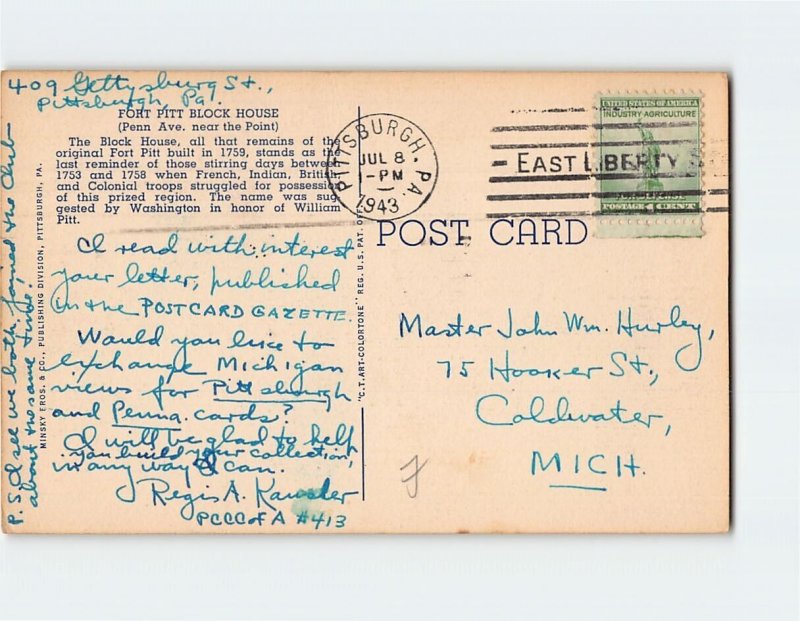 409 Gettysburg St.,
Pittsburgh, Pa.
FORT PITT BLOCK HOUSE
(Penn Ave. near the Point)
The Block House, all that remains of the
original Fort Pitt built in 1759, stands as the
last reminder of those stirring days between
1753 and 1758 when French, Indian, British
and Colonial troops struggled for possession
of this prized region. The name was sug-
gested by Washington in honor of William
Pitt.
I read with interest
your letter, published
in the POSTCARD GAZETTE.
Would you like to
exchange Michigan
views for Pittsburgh
and Penna. cards?
I will be glad to help
you build your collection,
in any way I can.
Regis A.
PCCC of A #413
P.S. I see we both joined the Club
about the same time.
MINSKY BROS. & CO., PUBLISHING DIVISION, PITTSBURGH, PA.
"C.T. ART-COLORTONE" REG. U.S. PAT. OFF.
PITTSBURGH, PA.
JUL 8
1-PM
1943
EAST LIBERTY
UNITED STATES OF AMERICA
INDUSTRY AGRICULTURE
FOR DEFENSE
POSTAGE 1 CENT
POST CARD
Master John Wm. Hurley,
75 Hooker St.,
Coldwater,
MICH.